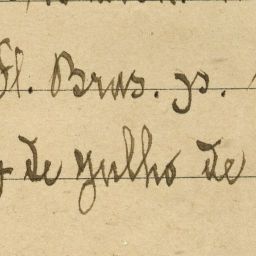 Fl. Bras. ps.
de Julho de